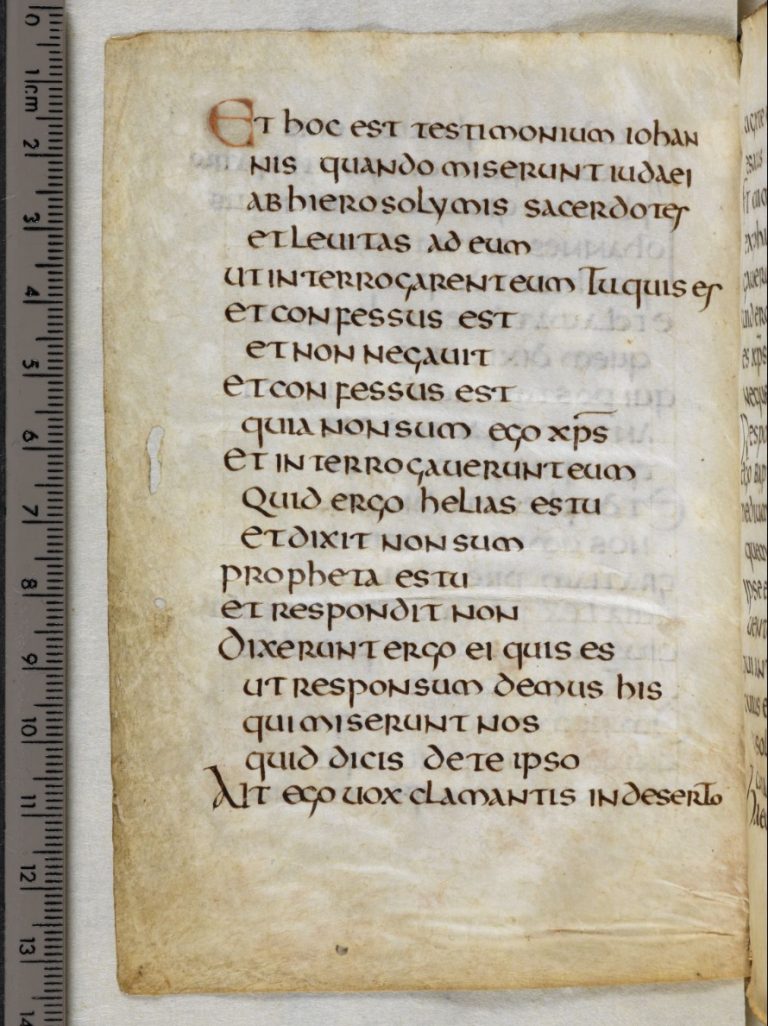 Et hoc est testimonium iohan
nis quando miserunt iudaei
ab hierosolymis sacerdotes
et leuitas ad eum
ut interrogarent eum Tu quis es
et confessus est
et non negauit
et confessus est
quia non sum ego xp̅s
et interrogauerunt eum
Quid ergo helias es tu
et dixit non sum
propheta es tu
et respondit non
dixerunt ergo ei quis es
ut responsum demus his
qui miserunt nos
quid dicis de te ipso
Ait ego uox clamantis in deserto
0 1cm 2 3 4 5 6 7 8 9 10 11 12 13 14